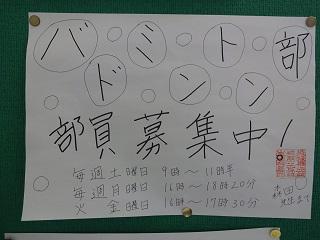 バドミントン部
部員募集中!
毎週土曜日 9時～11時半
毎週月曜日 16時～18時20分
火 金曜日 16時～17時30分
森田
先生まで